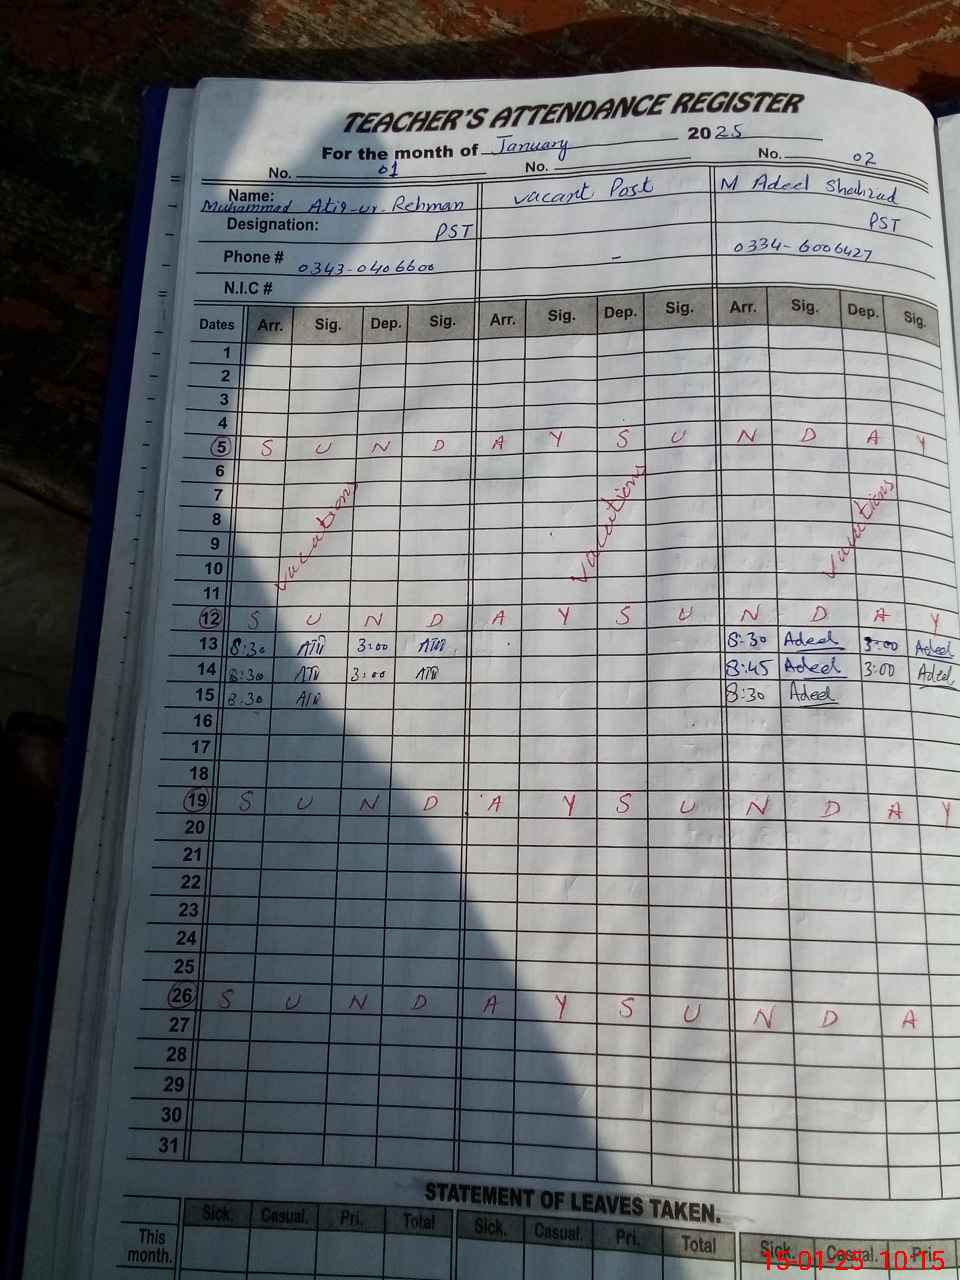 TEACHER'S ATTENDANCE REGISTER
For the month of January 2025
No. 01 No. No. 02
Name: Muhammad Atiq-ur-Rehman vacant Post M Adeel Shahzad
Designation: PST PST
Phone # 0343-0406600 - 0334-6006427
N.I.C #
Dates Arr. Sig. Dep. Sig. Arr. Sig. Dep. Sig. Arr. Sig. Dep. Sig.
1
2
3
4
5 S U N D A Y S U N D A Y
6
7
8 vacations vacations vacations
9
10
11
12 S U N D A Y S U N D A Y
13 8:30 3:00 8:30 Adeel 3:00 Adeel
14 8:30 3:00 8:45 Adeel 3:00 Adeel
15 8:30 8:30 Adeel
16
17
18
19 S U N D A Y S U N D A Y
20
21
22
23
24
25
26 S U N D A Y S U N D A
27
28
29
30
31
STATEMENT OF LEAVES TAKEN.
Sick. Casual. Pri. Total Sick. Casual. Pri. Total Sick. Casual. Pri.
This month.
15-01-25 10:15